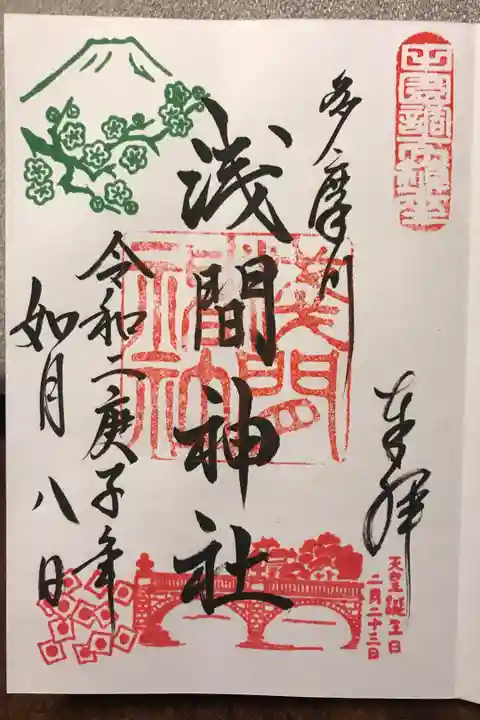 多摩川
奉拝
浅間神社
浅間神社
令和二庚子年
如月八日
天皇誕生日
二月二十三日